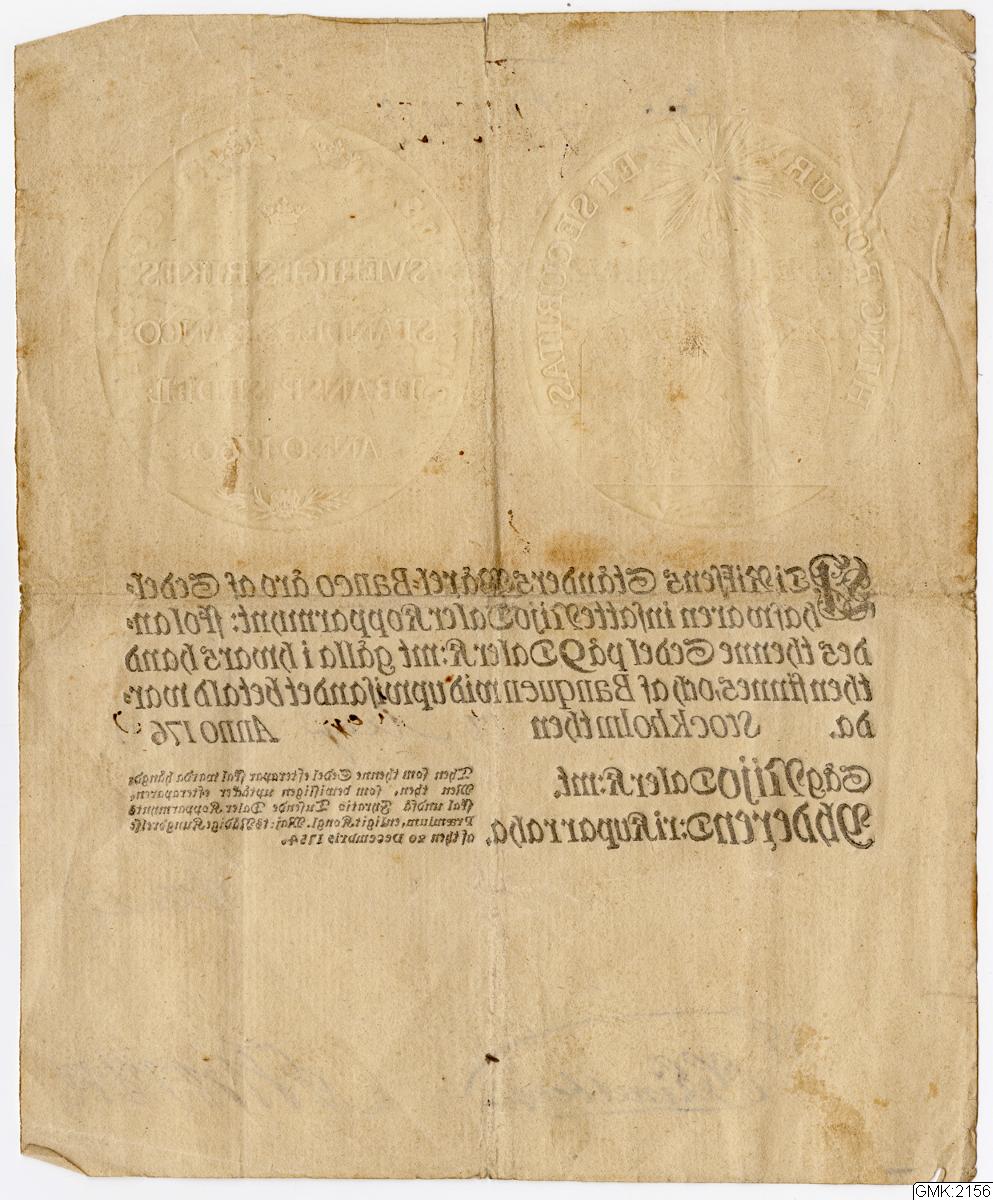 HINC ROBUR ET SECURITAS
SVERIGES RIKES
STÄNDERS BANCO
TRANSP. SEDEL
ANNO 1760
UTi Riksens Ständers Wäxel-Banco äro af Sedel-
hafwaren insatte Nijo Daler Kopparmynt: skolan-
des thenne Sedel på 9 Daler K:mt gälla i hwars hand
then finnes, och af Banquen wid upwisandet betald war-
da. Stockholm then Anno 176
Säg Nijo Daler K:mt.
Yhderen D:ri Kuparraha.
Then som thenne Sedel efterapar skal warda hängd:
Men then, som bewisligen uptäcker efteraparen,
skal undfå Fyratio Tusende Daler Kopparmynts
Præmium, enligit Kongl. Maj:ts Nådige Kungörelse
af then 20 Decembris 1754.
GMK:2156